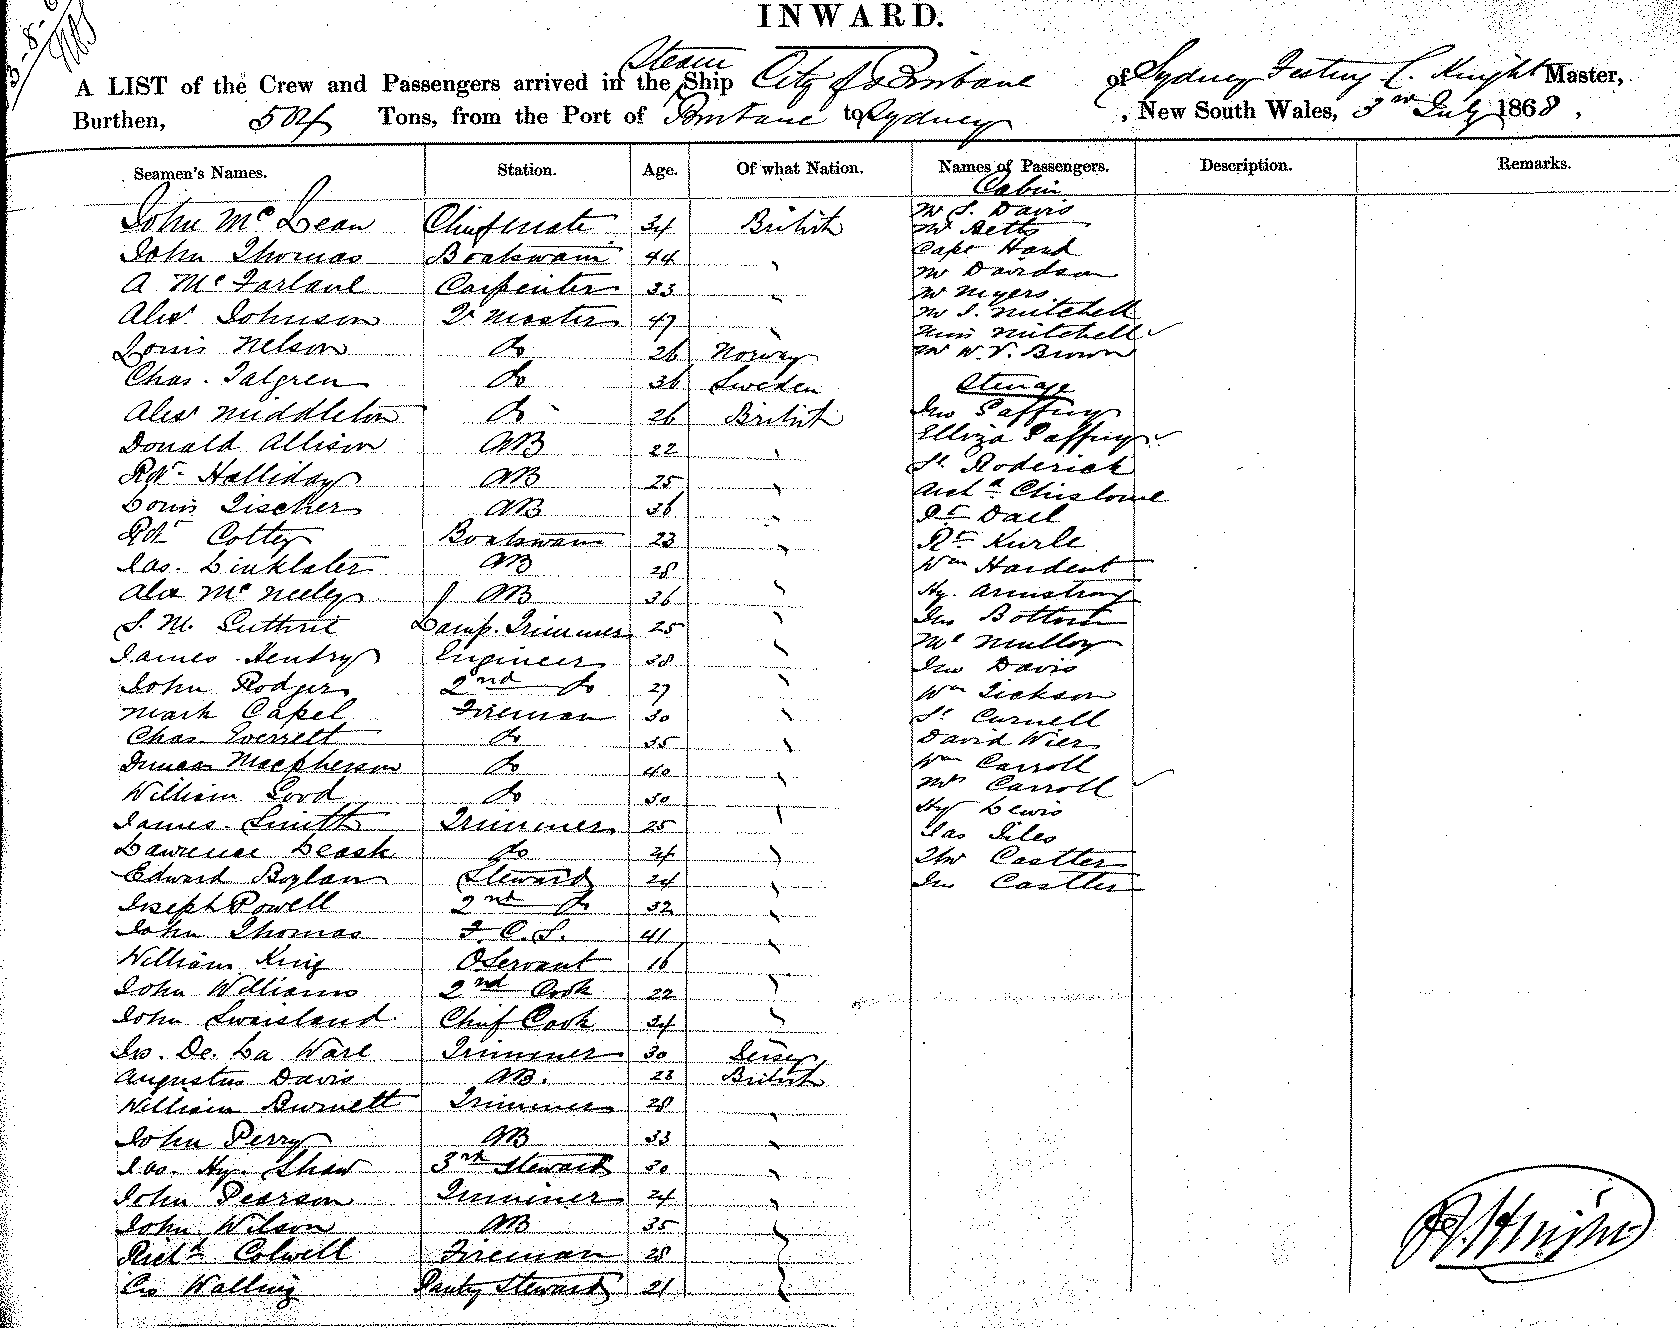 INWARD.
Steam
A LIST of the Crew and Passengers arrived in the Ship City of Brisbane of Sydney Knight Master,
Burthen, 504 Tons, from the Port of Brisbane to Sydney, New South Wales, 3rd July 1868.
Seamen's Names. Station. Age. Of what Nation. Names of Passengers. Description. Remarks.
Cabin
John McLean Chief mate 34 British Mr S. Davis
Mr Betts
John Thomas Boatswain 44 " Capt Hard
A McFarlane Carpenter 33 " Mr Davidson
Mr Myers
Alexr Johnson Qr Master 47 " Mr S. Mitchell
Miss Mitchell
Louis Nelson do 26 Norway Mr W. V. Brown
Chas. Talgren do 36 Sweden Steerage
Alexr Middleton do 26 British Jno Gaffney
Donald Allison AB 22 " Elliza Gaffney
Rbt Halliday AB 25 " St Roderick
Louis Fischer AB 36 " Archd
Rbt Cotter Boatswain 23 " Dall
Jas. Linklater AB 28 " Kurle
Wm Hardent
Alex McNeeley AB 36 " Hy. Armstrong
S. M. Guthrie Lamp. Trimmer 25 " Jno Bottom
James Hendry Engineer 38 " Mulloy
Jno Davis
John Rodger 2nd do 27 " Wm Dickson
Mark Capel Fireman 30 " Curnell
Chas Everrett do 35 " David Wier
Duncan Macpherson do 40 " Wm Carroll
William Good do 30 " Mrs Carroll
Hy Lewis
James Smith Trimmer 25 " Jas Giles
Lawrence Leask do 24 " Castler
Edward Boylan Steward 24 " Jno Castler
Joseph Powell 2nd do 32 "
John Thomas F. C. S. 41 "
William King O Servant 16 "
John Williams 2nd Cook 22 "
John Swaisland Chief Cook 34 "
Jno. De. La Ware Trimmer 30 Jersey
Augustus Davis AB. 23 British
William Burnett Trimmer 28 "
John Perry AB 33 "
Jas. Hy. Shaw 3rd Steward 30 "
John Pearson Trimmer 24 "
John Wilson AB 35 "
Richd Colwell Fireman 28 "
Walling Pantry Steward 21 "
Knight